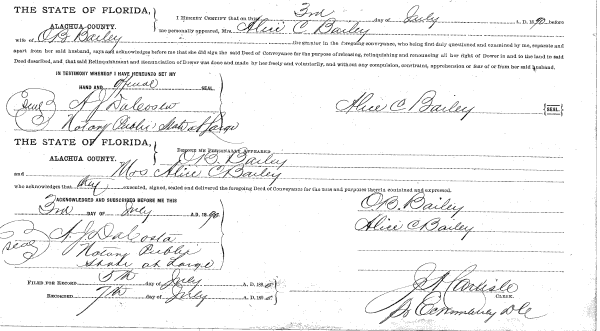 THE STATE OF FLORIDA,
ALACHUA COUNTY.
I HEREBY CERTIFY that on this 3rd day of July A. D. 1890, before
me personally appeared, Mrs. Alice C. Bailey
wife of O B Bailey Grantor in the foregoing conveyance, who being first duly questioned and examined by me, separate and
apart from her said husband, says and acknowledges before me that she did sign the said Deed of Conveyance for the purpose of releasing, relinquishing and renouncing all her right of Dower in and to the land in said
Deed described, and that said Relinquishment and Renunciation of Dower was done and made by her freely and voluntarily, and without any compulsion, constraint, apprehension or fear of or from her said husband.
IN TESTIMONY WHEREOF I HAVE HEREUNTO SET MY
HAND AND official SEAL.
Seal A. J. DaCosta
Alice C. Bailey SEAL.
Notary Public State at Large
THE STATE OF FLORIDA,
ALACHUA COUNTY.
BEFORE ME PERSONALLY APPEARED
O. B. Bailey
and Mrs Alice C Bailey
who acknowledges that they executed, signed, sealed and delivered the foregoing Deed of Conveyance for the uses and purposes therein contained and expressed.
ACKNOWLEDGED AND SUBSCRIBED BEFORE ME THIS
3rd DAY OF July A.D. 1890
O. B. Bailey
Alice C Bailey
Seal A. J. DaCosta
Notary Public
State at Large
FILED FOR RECORD 5th day of July A. D. 1890
RECORDED 7th day of July A. D. 1890
J A Carlisle
CLERK.